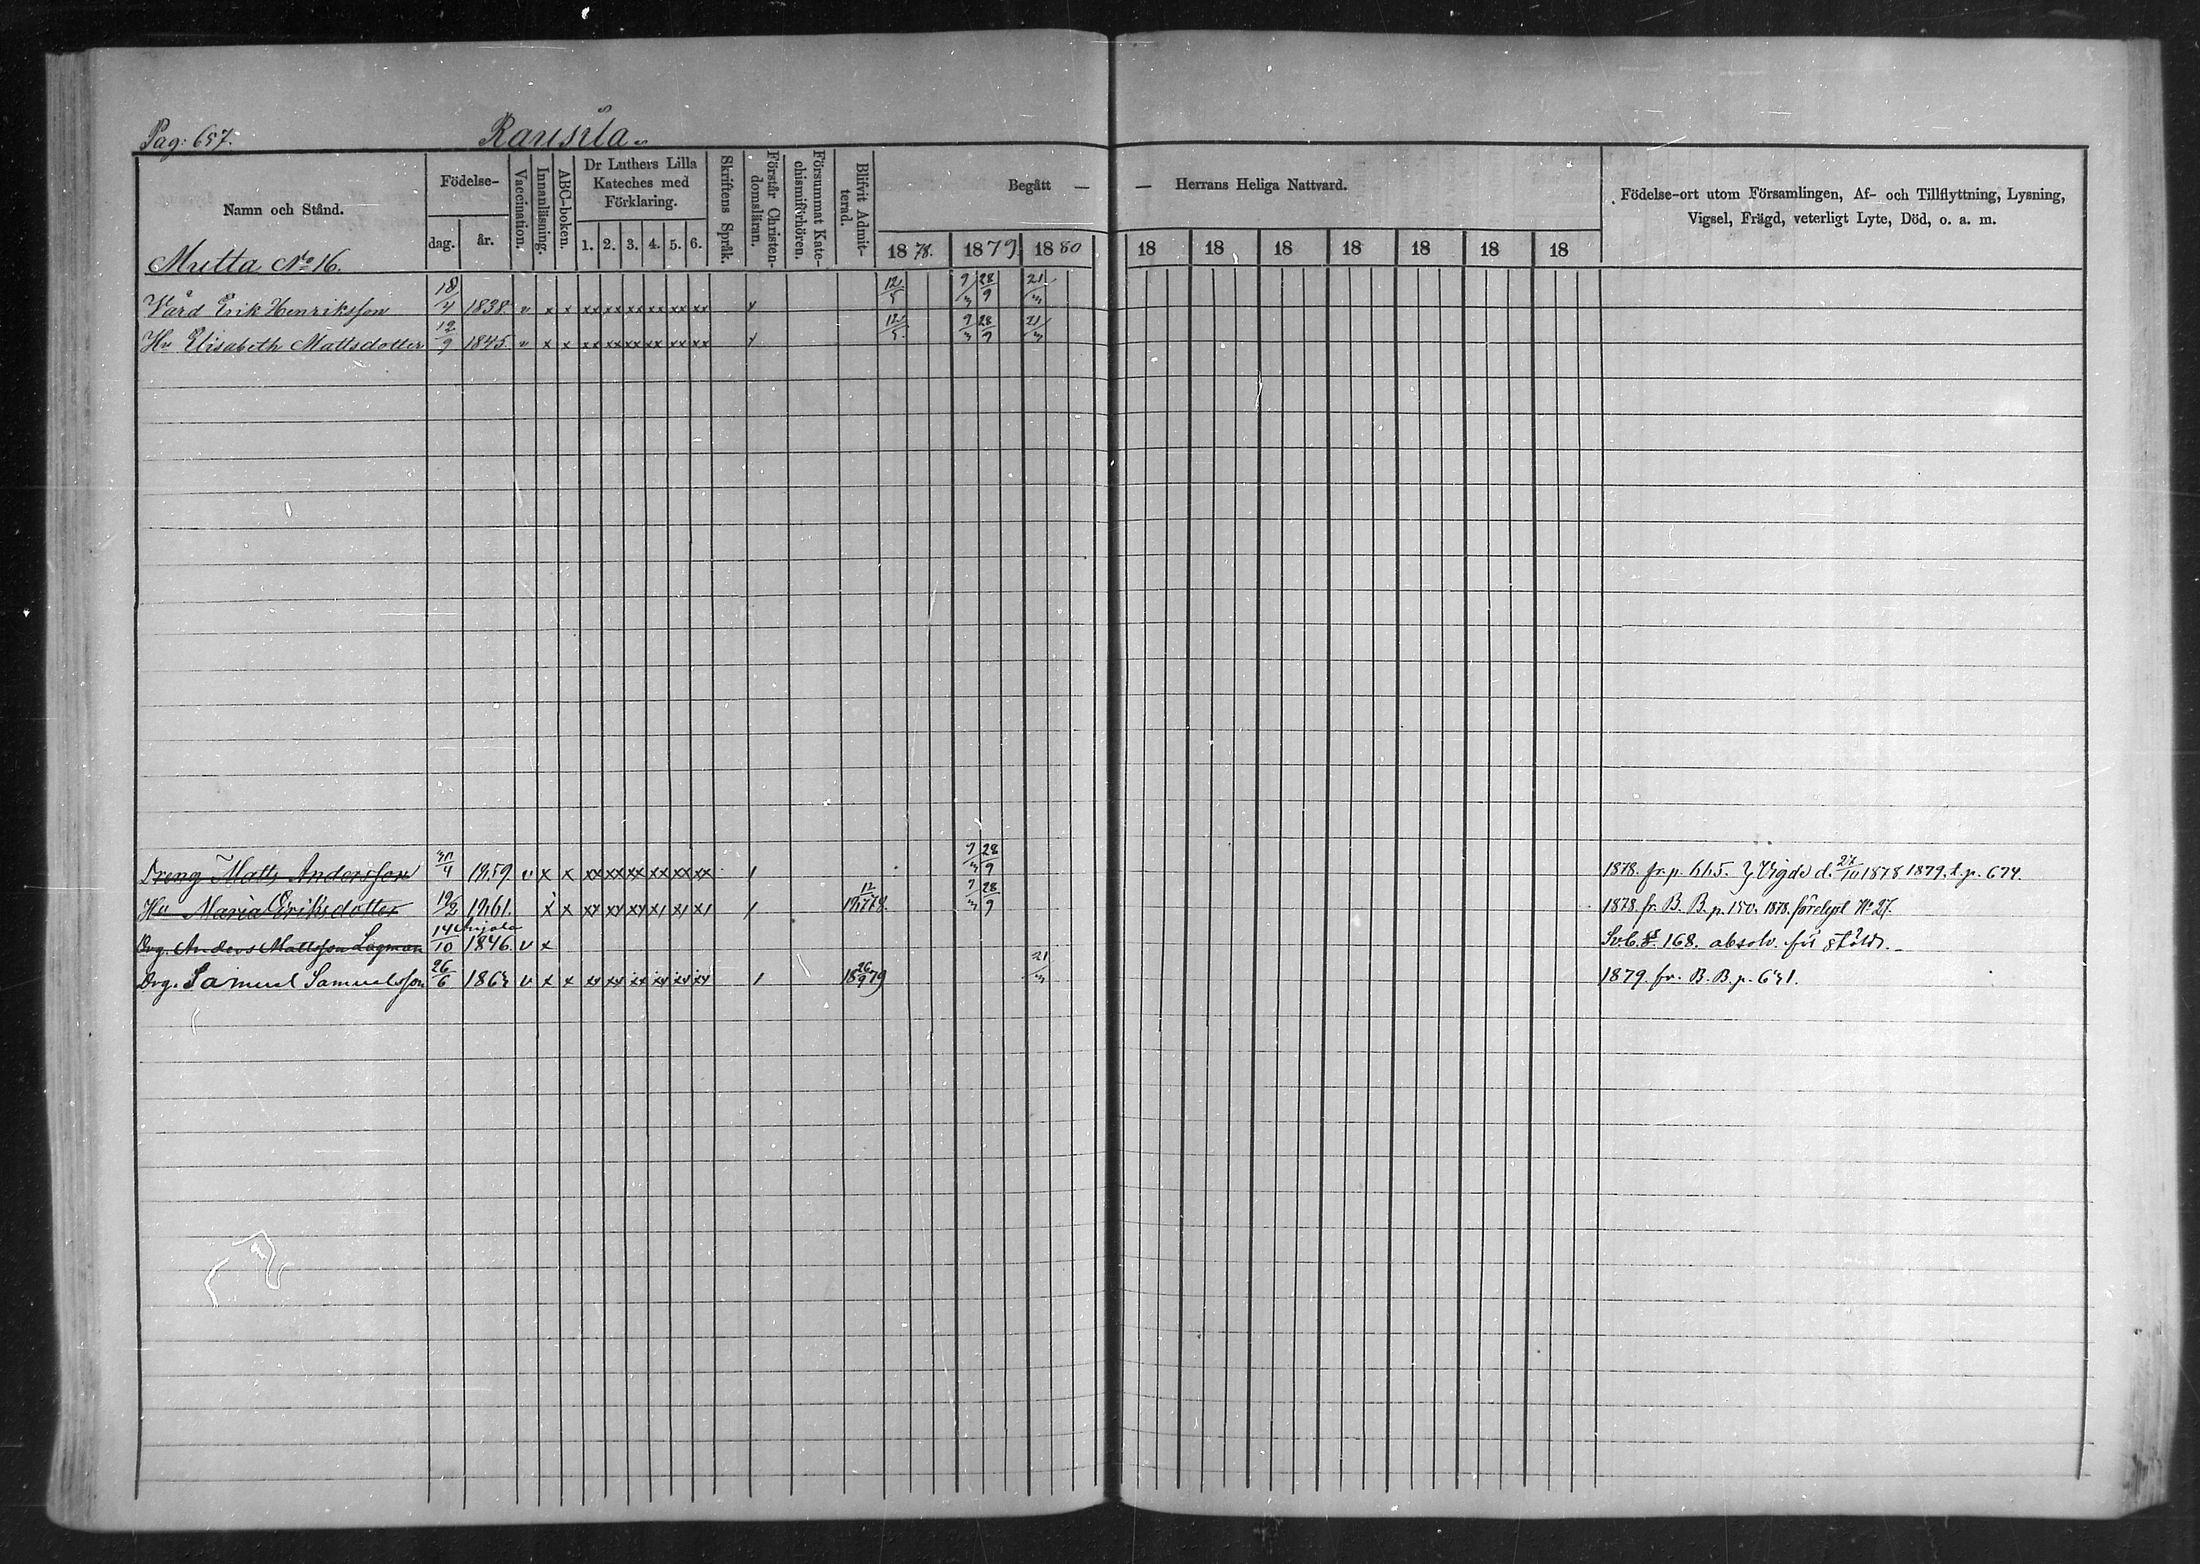 Pag: 657. Rausila
Namn och Stånd.
Födelse-
dag. år.
Vaccination.
Innanläsning.
ABC-boken.
Dr Luthers Lilla
Kateches med
Förklaring.
1. 2. 3. 4. 5. 6.
Skriftens Språk.
Förstår Christen-
domsläran.
Försummat Kate-
chismiförhören.
Blifvit Admit-
terad.
Begått — — Herrans Heliga Nattvard.
1878. 1879. 1880 18 18 18 18 18 18 18
Födelse-ort utom Församlingen, Af- och Tillflyttning, Lysning,
Vigsel, Frägd, veterligt Lyte, Död, o. a. m.
Mutta No 16.
Vård Erik Henriksson 18/4 1838. v x x xx xx xx xx xx xx 12/5 9/3 28/9 21/3
Hu Elisabeth Mattsdotter 12/9 1845. v x x xx xx xx xx xx xx 12/5 9/3 28/9 21/3
Dreng Matts Andersson 1859. v x x xx xx xx xx xx xx 9/3 28/9 1878. fr. p. 665. Vigde d. 27/10 1878 1879. t. p. 674.
Hu Maria Eriksdotter 19/2 1861. x x 12/7 1878. 9/3 28/9 1878. fr. B. B. p. 150. 1878. No 27.
Drg. Anders Mattsson Lagman 14/10 Anjala 1846. v x 168. absolv. för stöld.
Drg. Samuel Samuelsson 26/6 1863 v x x 26/9 1879 21/3 1879. fr. B. B. p. 631.